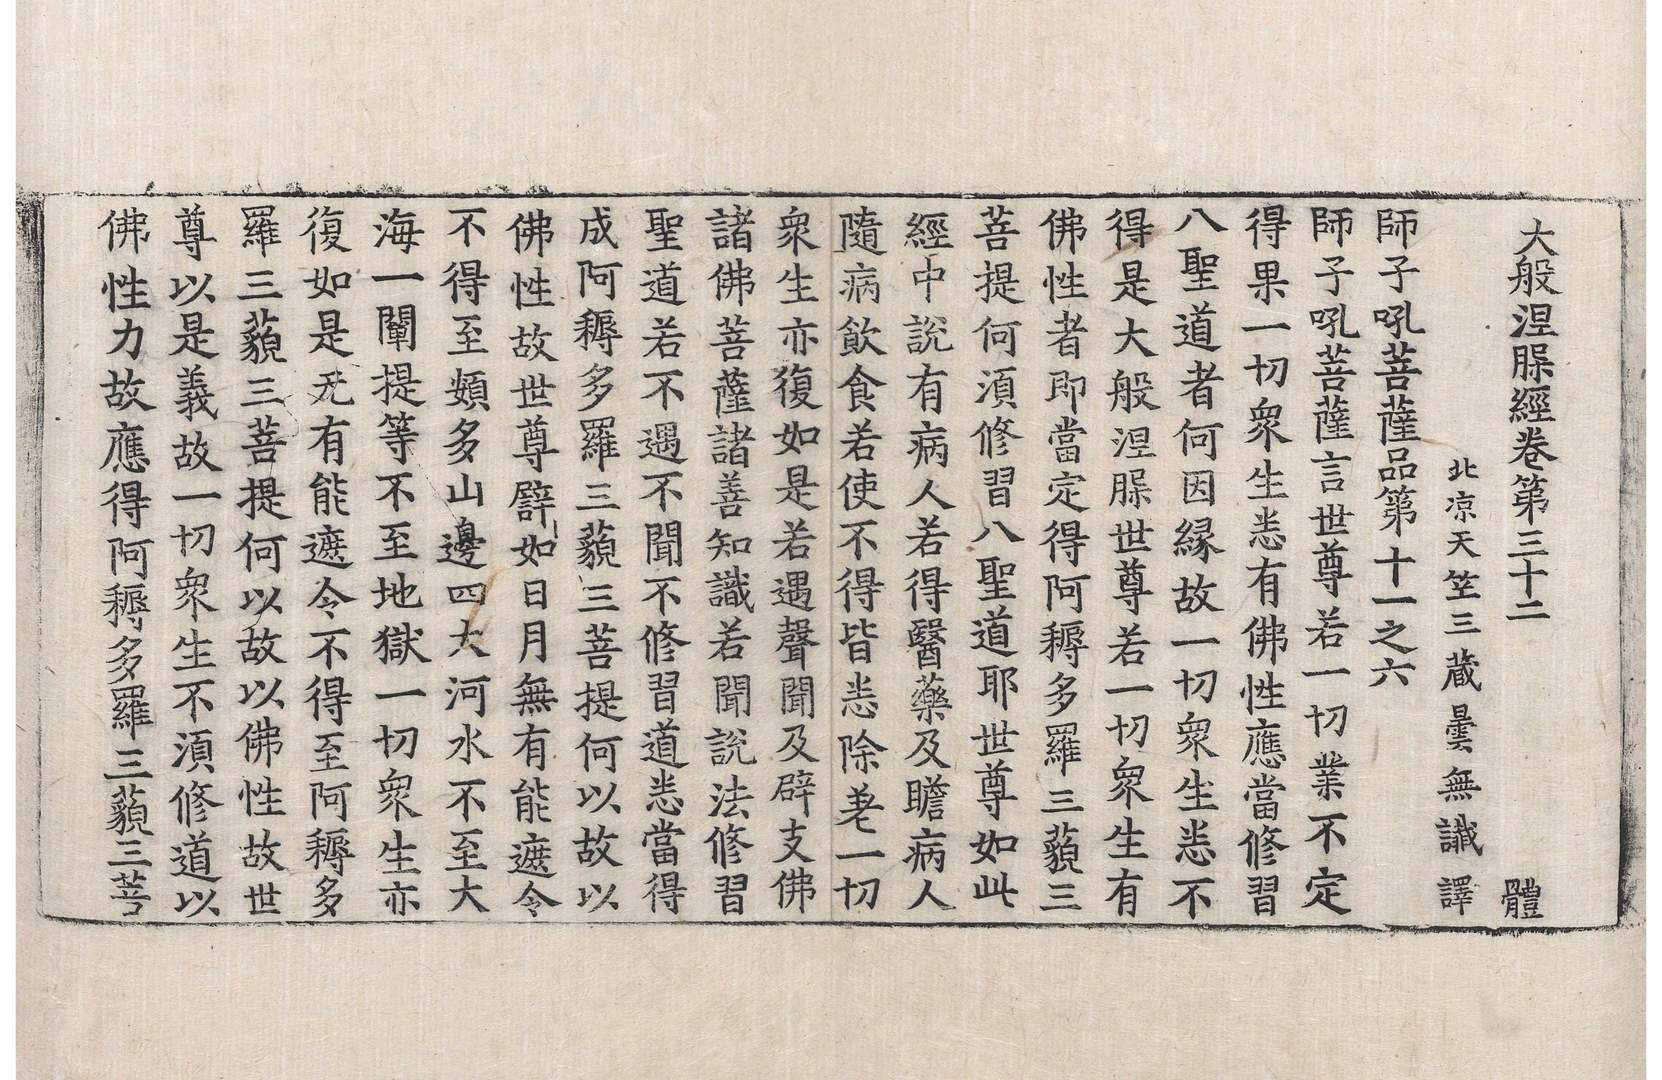 大般涅槃經卷第三十二 體
北凉天竺三藏曇無讖譯
師子吼菩薩品第十一之六
師子吼菩薩言世尊若一切業不定
得果一切衆生悉有佛性應當修習
八聖道者何因縁故一切衆生悉不
得是大般涅槃世尊若一切衆生有
佛性者即當定得阿耨多羅三藐三
菩提何湏修習八聖道耶世尊如此
經中說有病人若得醫藥及瞻病人
隨病飲食若使不得皆悉除差一切
衆生亦復如是若遇聲聞及辟支佛
諸佛菩薩諸善知識若聞說法修習
聖道若不遇不聞不修習道悉當得
成阿耨多羅三藐三菩提何以故以
佛性故世尊譬如日月無有能遮令
不得至頞多山邊四大河水不至大
海一闡提等不至地獄一切衆生亦
復如是无有能遮令不得至阿耨多
羅三藐三菩提何以故以佛性故世
尊以是義故一切衆生不湏修道以
佛性力故應得阿耨多羅三藐三菩